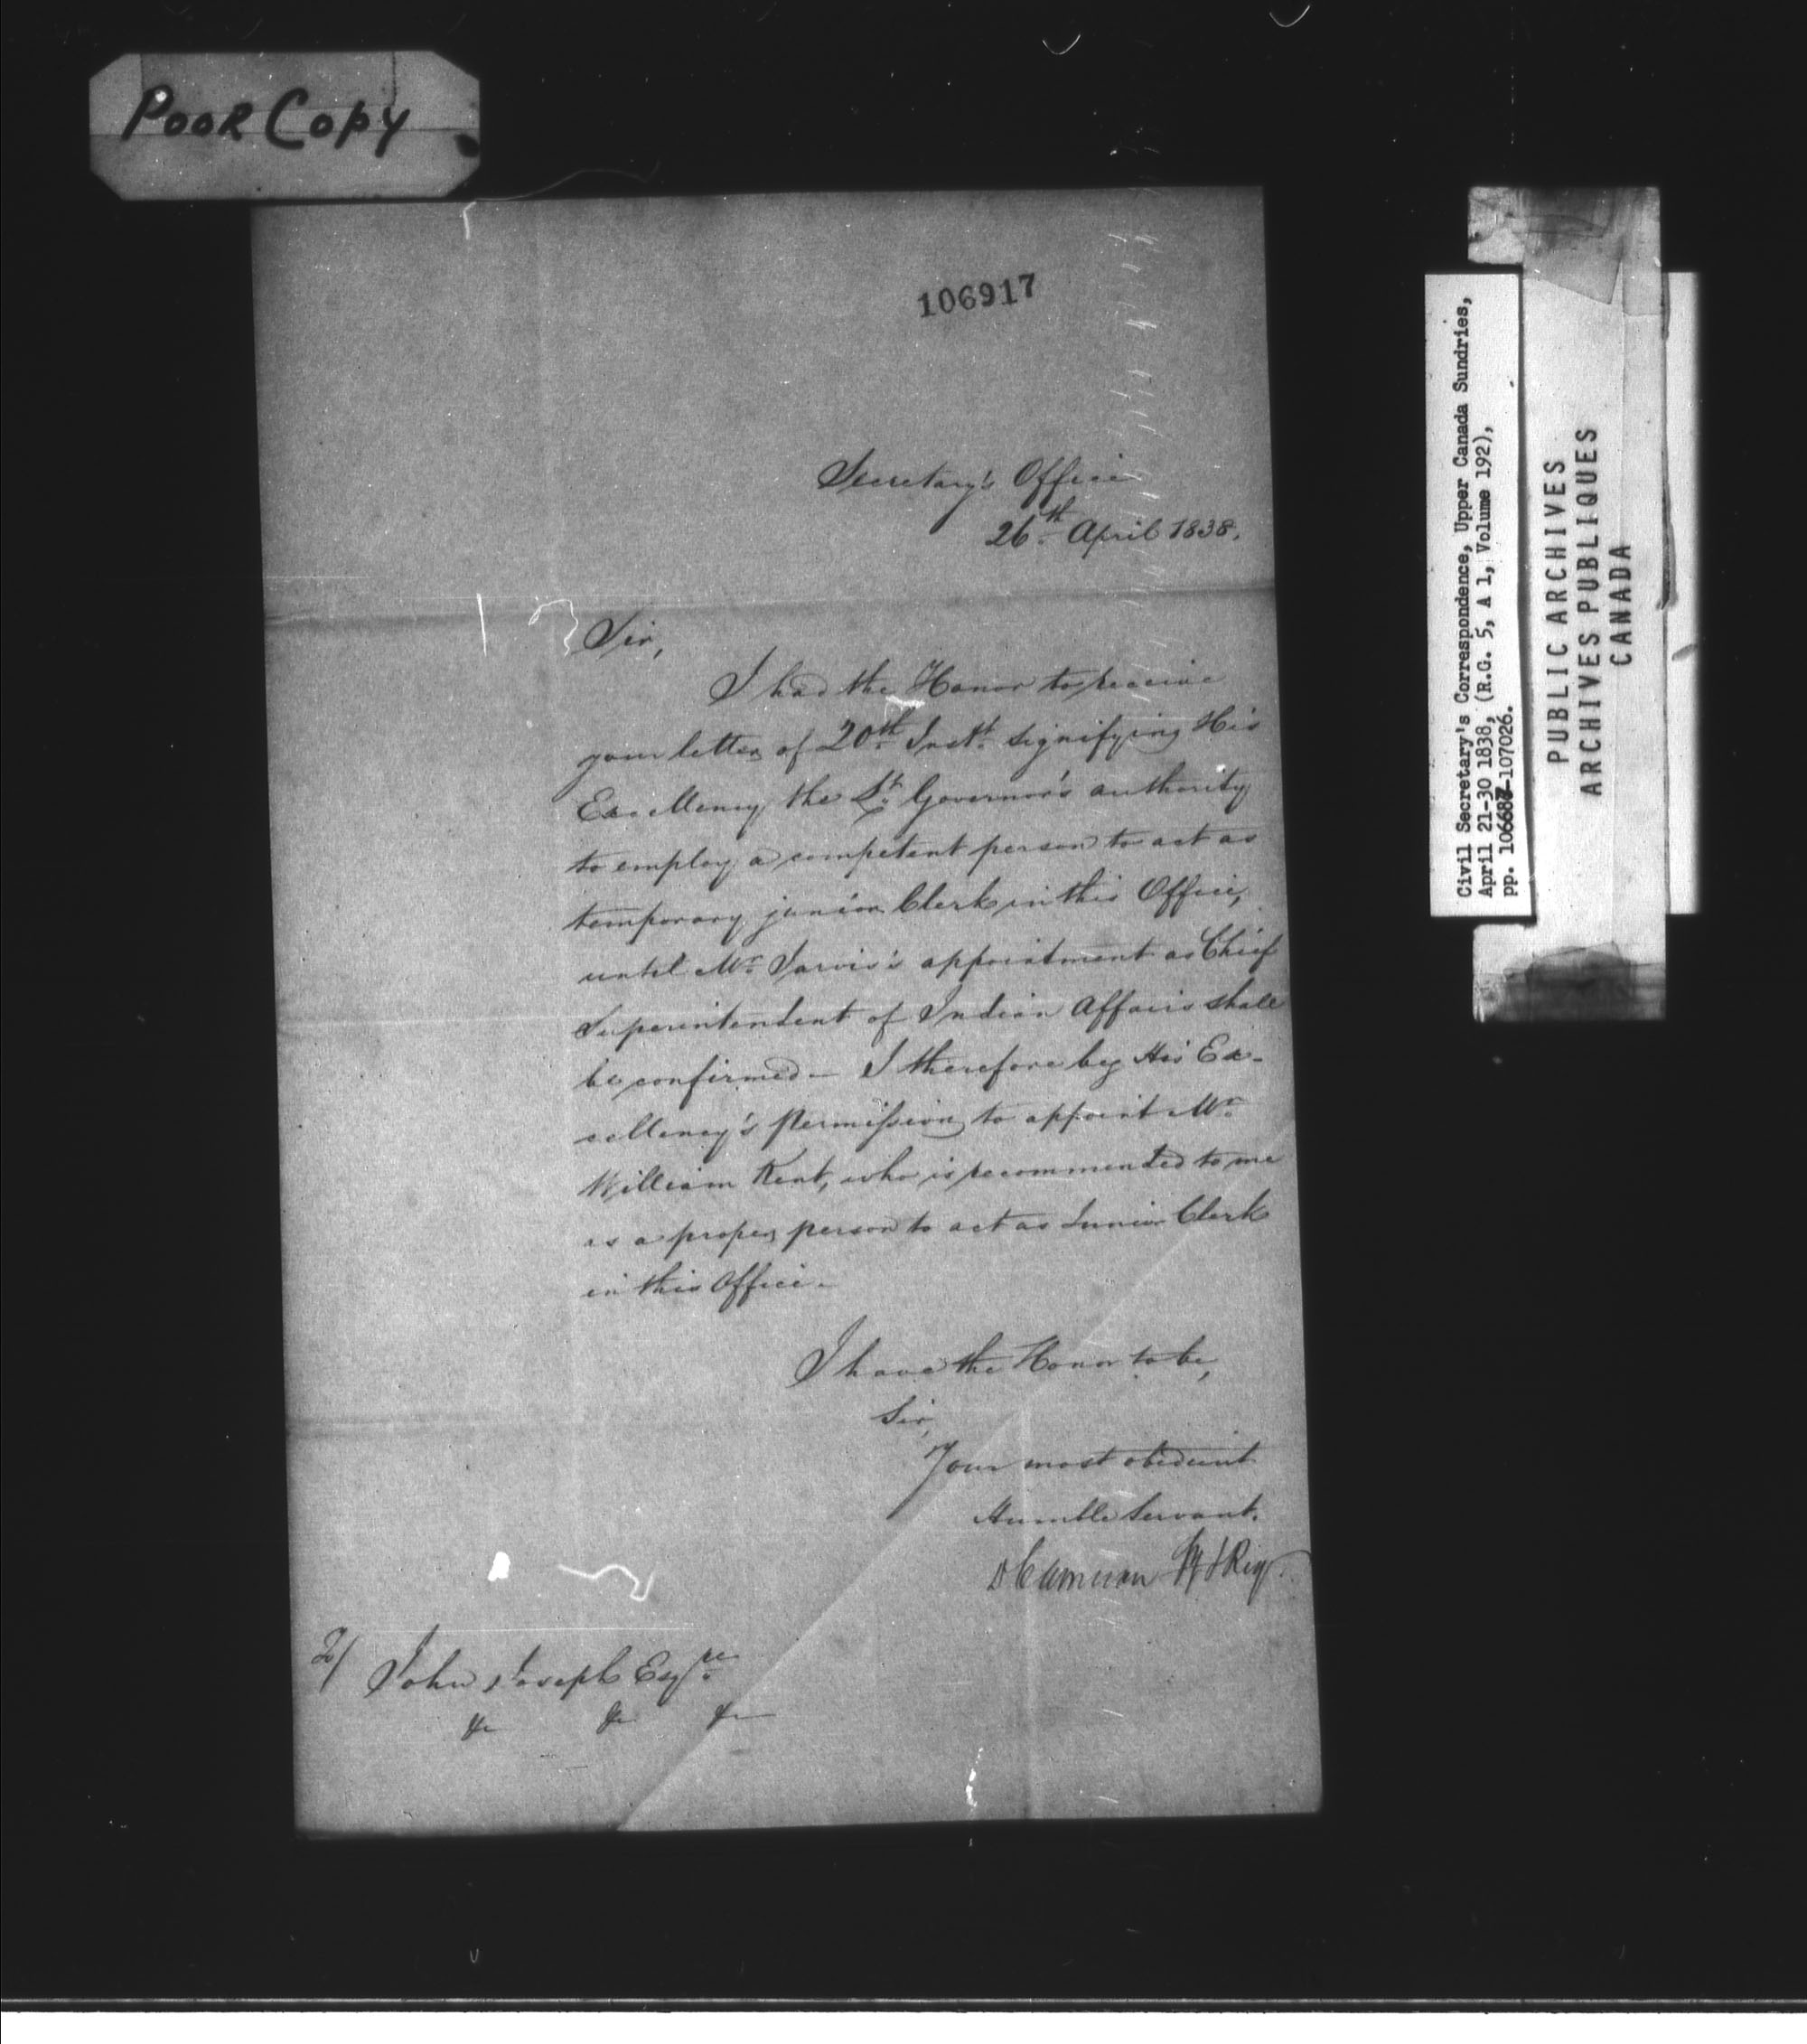 Poor Copy
106917
Secretary's Office
26th April 1838.
Sir,
I had the Honor to receive
your letter of 20th Inst. signifying His
Excellency the Lt. Governor's authority
to employ a competent person to act as
temporary junior Clerk in this Office,
until Mr. Jarvis's appointment as Chief
Superintendent of Indian Affairs shall
be confirmed - I therefore beg His Ex-
cellency's Permission to appoint Mr.
William Kent, who is recommended to me
as a proper person to act as Junior Clerk
in this Office -
I have the Honor to be,
Sir,
Your most obedient
Humble Servant.
D Cameron Sy & Regr.
John Joseph Esqre.
&c &c &c
Civil Secretary's Correspondence, Upper Canada Sundries,
April 21-30 1838, (R.G. 5, A 1, Volume 192),
pp. 106687-107026.
PUBLIC ARCHIVES
ARCHIVES PUBLIQUES
CANADA